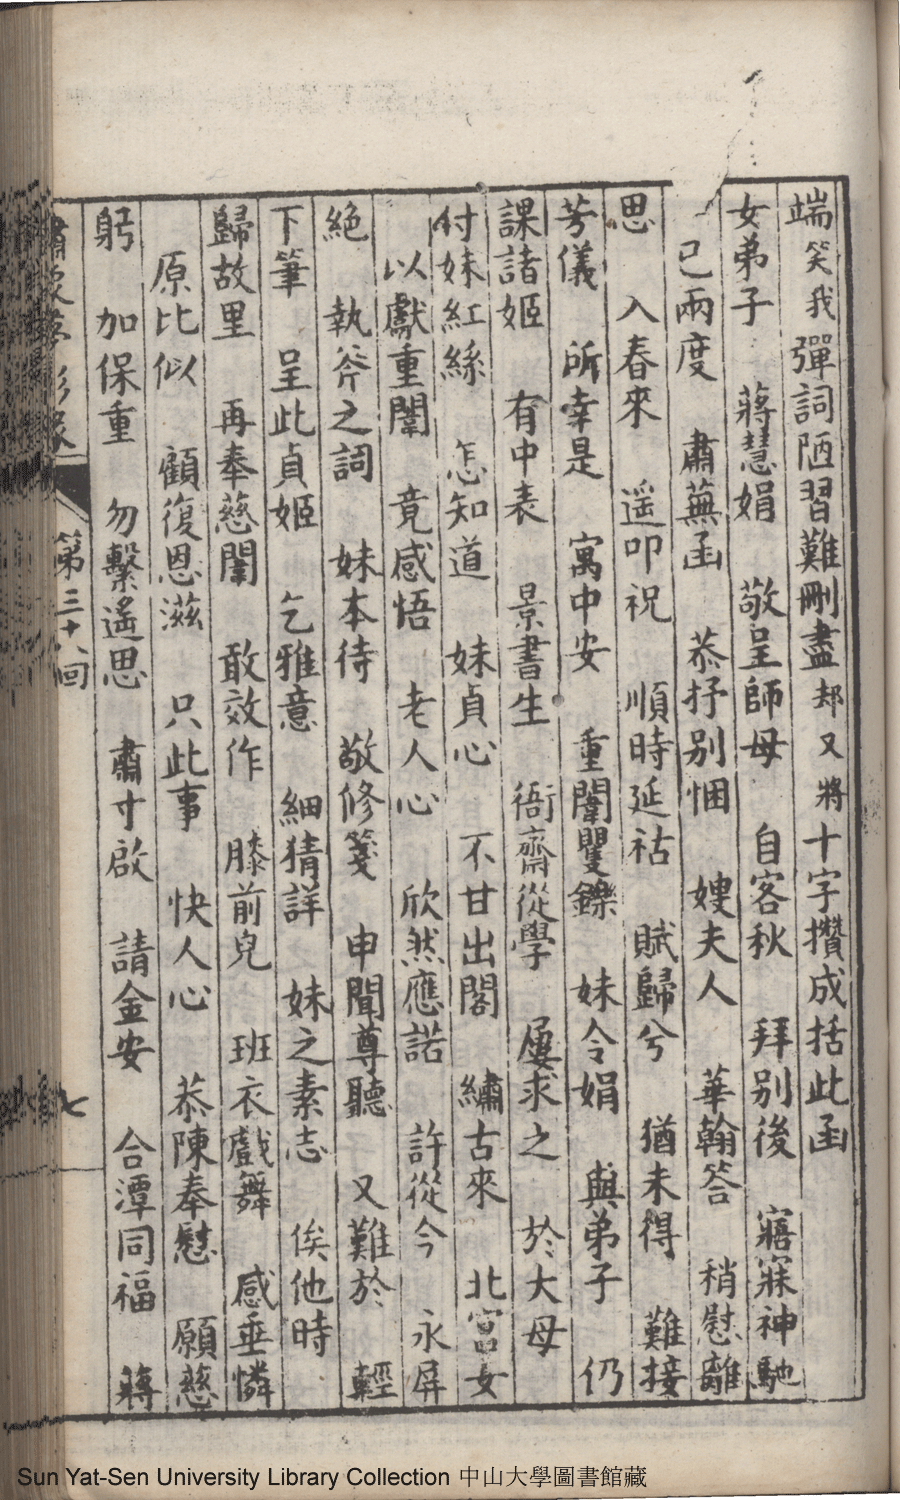 端笑我彈詞陋習難刪盡却又將十字攢成括此函
女弟子 蔣慧娟 敬呈師母 自客秋 拜別後 寤寐神馳
已兩度 肅蕪函 恭抒別悃 嫂夫人 華翰答 稍慰離
思 入春來 遥叩祝 順時延祜 賦歸兮 猶未得 難接
芳儀 所幸是 寓中安 重闈矍鑠 妹令娟 與弟子 仍
課諸姬 有中表 景書生 衙齋從學 屢求之 於大母
付妹紅絲 怎知道 妹貞心 不甘出閣 繡古來 北宮女
以獻重闈 竟感悟 老人心 欣然應諾 許從今 永屏
絶 執斧之詞 妹本待 敬修箋 申聞尊聽 又難於 輕
下筆 呈此貞姬 乞雅意 細猜詳 妹之素志 俟他時
歸故里 再奉慈闈 敢效作 膝前兒 班衣戲舞 感垂憐
原比似 顧復恩滋 只此事 快人心 恭陳奉慰 願慈
躬 加保重 勿繫遙思 肅寸啟 請金安 合潭同福 蔣
第三十八回
七
Sun Yat-Sen University Library Collection 中山大學圖書館藏